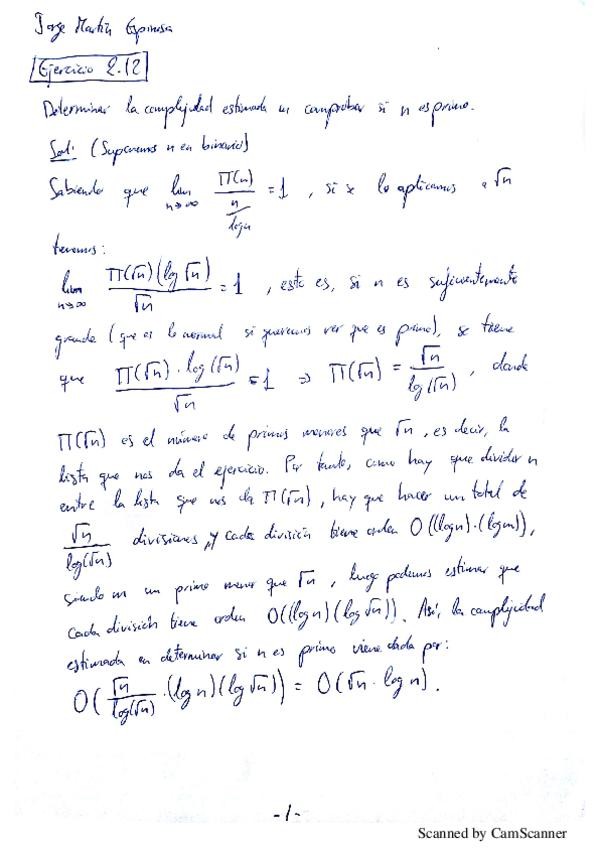 Jorge Martín Espinosa
Ejercicio 2.12
Determinar la complejidad estimada en comprobar si n es primo.
Sol: (Suponemos n en binario)
Sabiendo que lim n→∞ Π(n) / (n / log n) = 1 , si se lo aplicamos a √n
tenemos:
lim n→∞ Π(√n)(log √n) / √n = 1 , esto es, si n es suficientemente
grande (que es lo normal si queremos ver que es primo), se tiene
que Π(√n) · log(√n) / √n = 1 ⇒ Π(√n) = √n / log(√n) , donde
Π(√n) es el número de primos menores que √n, es decir, la
lista que nos da el ejercicio. Por tanto, como hay que dividir n
entre la lista que nos da Π(√n), hay que hacer un total de
√n / log(√n) divisiones, y cada división tiene orden O((log n)·(log m)),
siendo m un primo menor que √n , luego podemos estimar que
cada división tiene orden O((log n)(log √n)). Así, la complejidad
estimada en determinar si n es primo viene dada por:
O( √n / log(√n) · (log n)(log √n)) = O(√n · log n).
-1-
Scanned by CamScanner